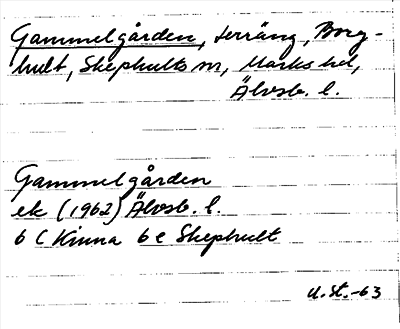 Gammelgården, terräng, Borg-
hult, Skephults sn, Marks hd,
Älvsb. l.
Gammelgården
ek (1962) Älvsb. l.
6 C Kinna 6 e Skephult
U. St. -63